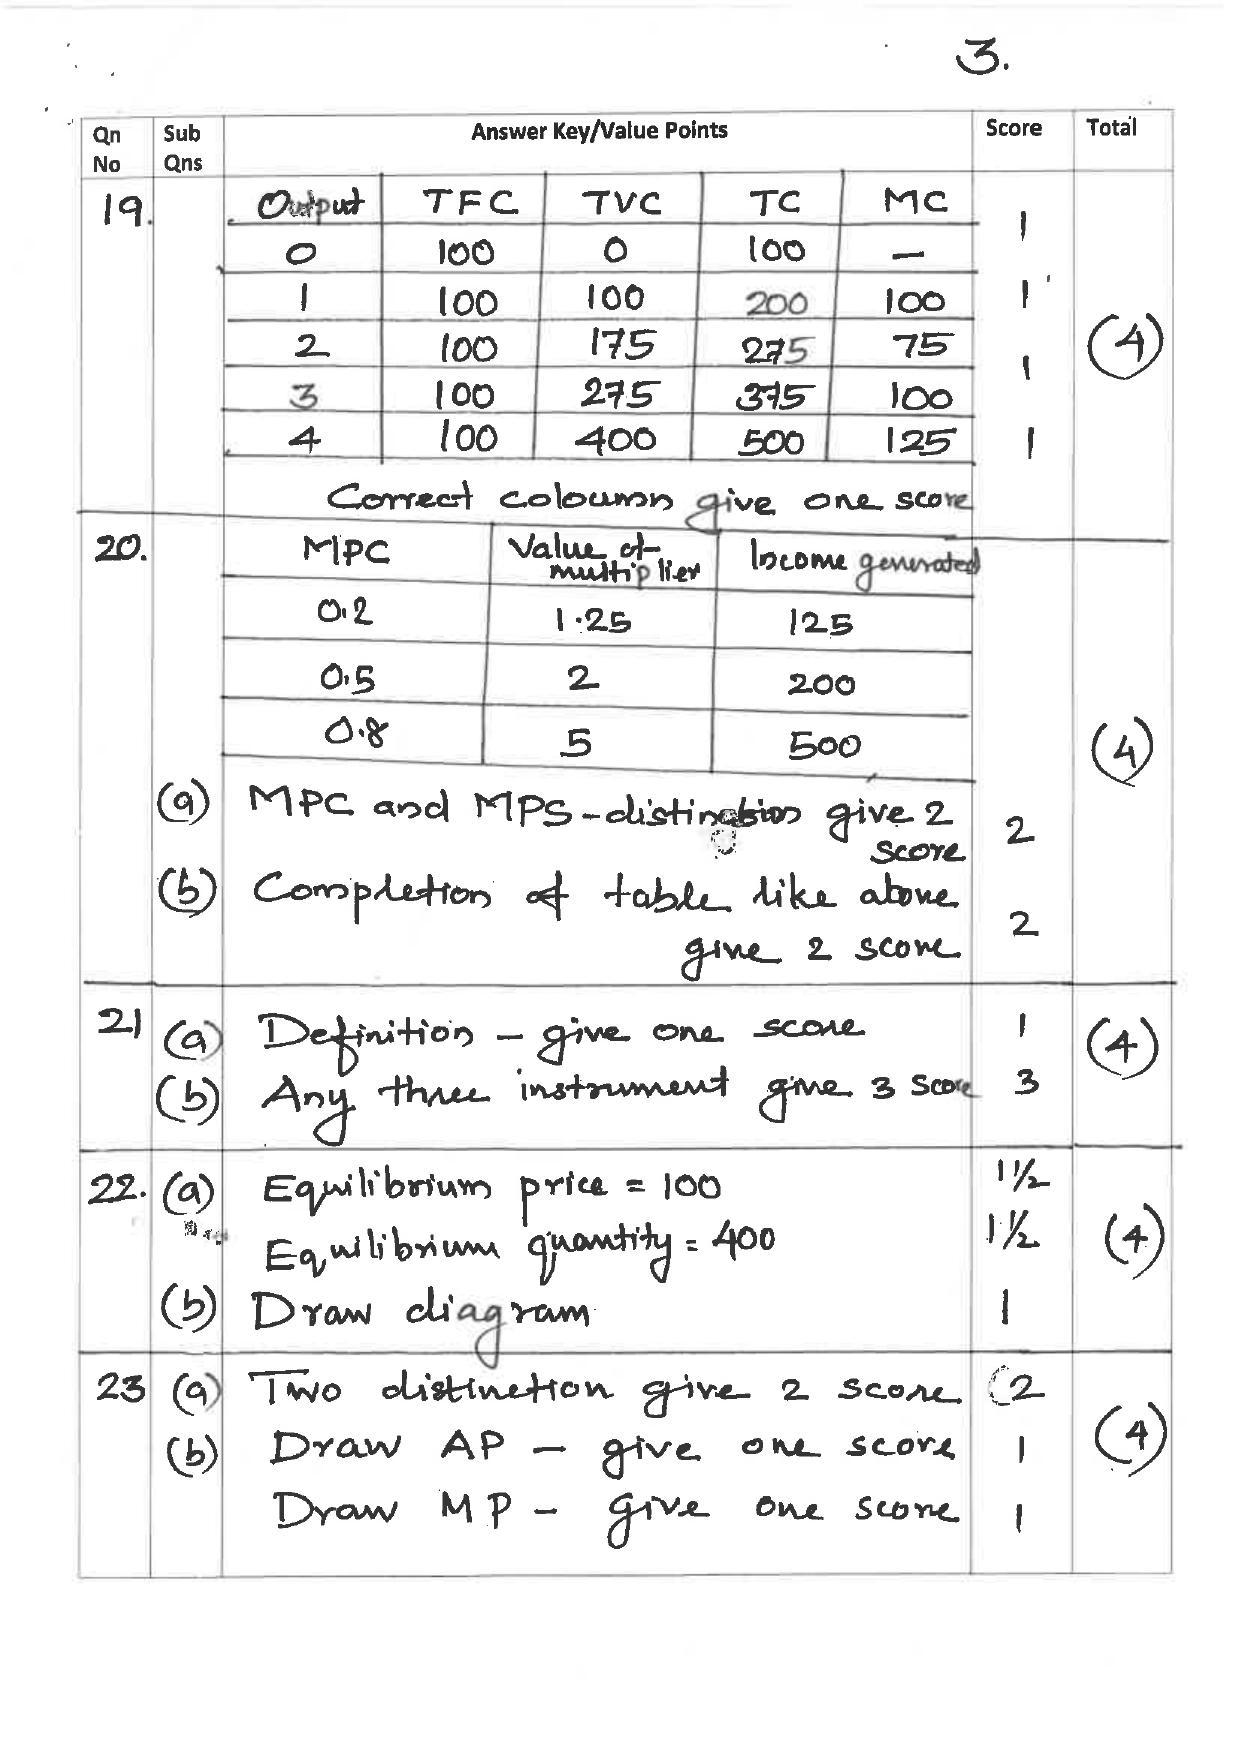 3.
Qn No Sub Qns Answer Key/Value Points Score Total
19. Output TFC TVC TC MC 1
0 100 0 100 —
1 100 100 200 100 1
2 100 175 275 75 1 (4)
3 100 275 375 100
4 100 400 500 125 1
Correct coloumn give one score
20. MPC Value of multiplier Income generated
0.2 1.25 125
0.5 2 200
0.8 5 500 (4)
(a) MPC and MPS - distinction give 2 score 2
(b) Completion of table like above give 2 score 2
21 (a) Definition - give one score 1 (4)
(b) Any three instrument give 3 score 3
22. (a) Equilibrium price = 100 1 1/2
Equilibrium quantity = 400 1 1/2 (4)
(b) Draw diagram 1
23 (a) Two distinction give 2 score 2
(b) Draw AP - give one score 1 (4)
Draw MP - give one score 1